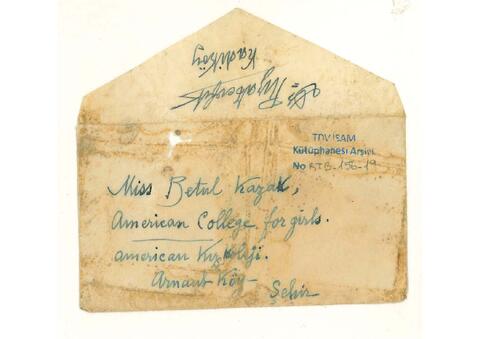 Kadıköy
TDV İSAM
Kütüphanesi Arşivi
No RTB-156-19
Miss Betul Kazak,
American College for girls.
american Kız Koleji.
Arnavut Köy-
Şehir